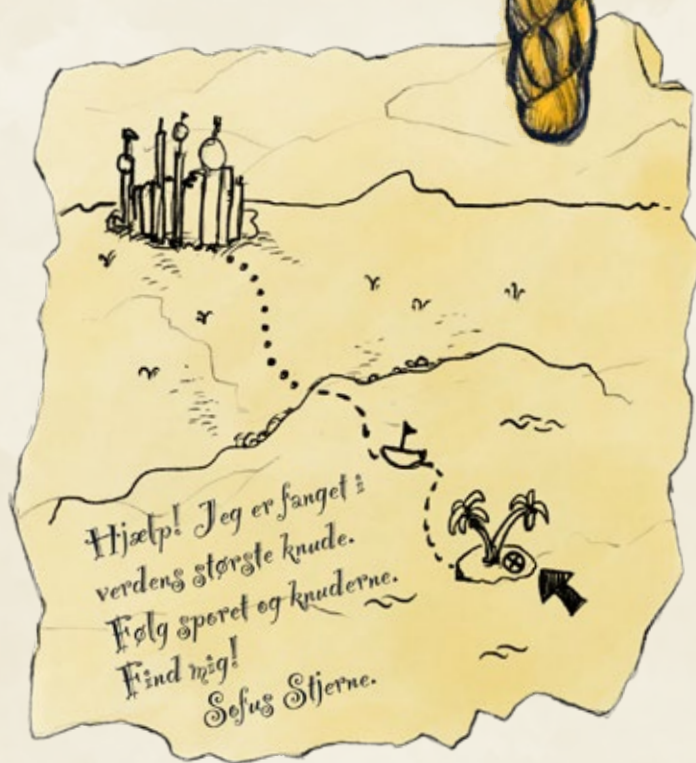 Hjælp! Jeg er fanget i
verdens største knude.
Følg sporet og knuderne.
Find mig!
Sofus Stjerne.